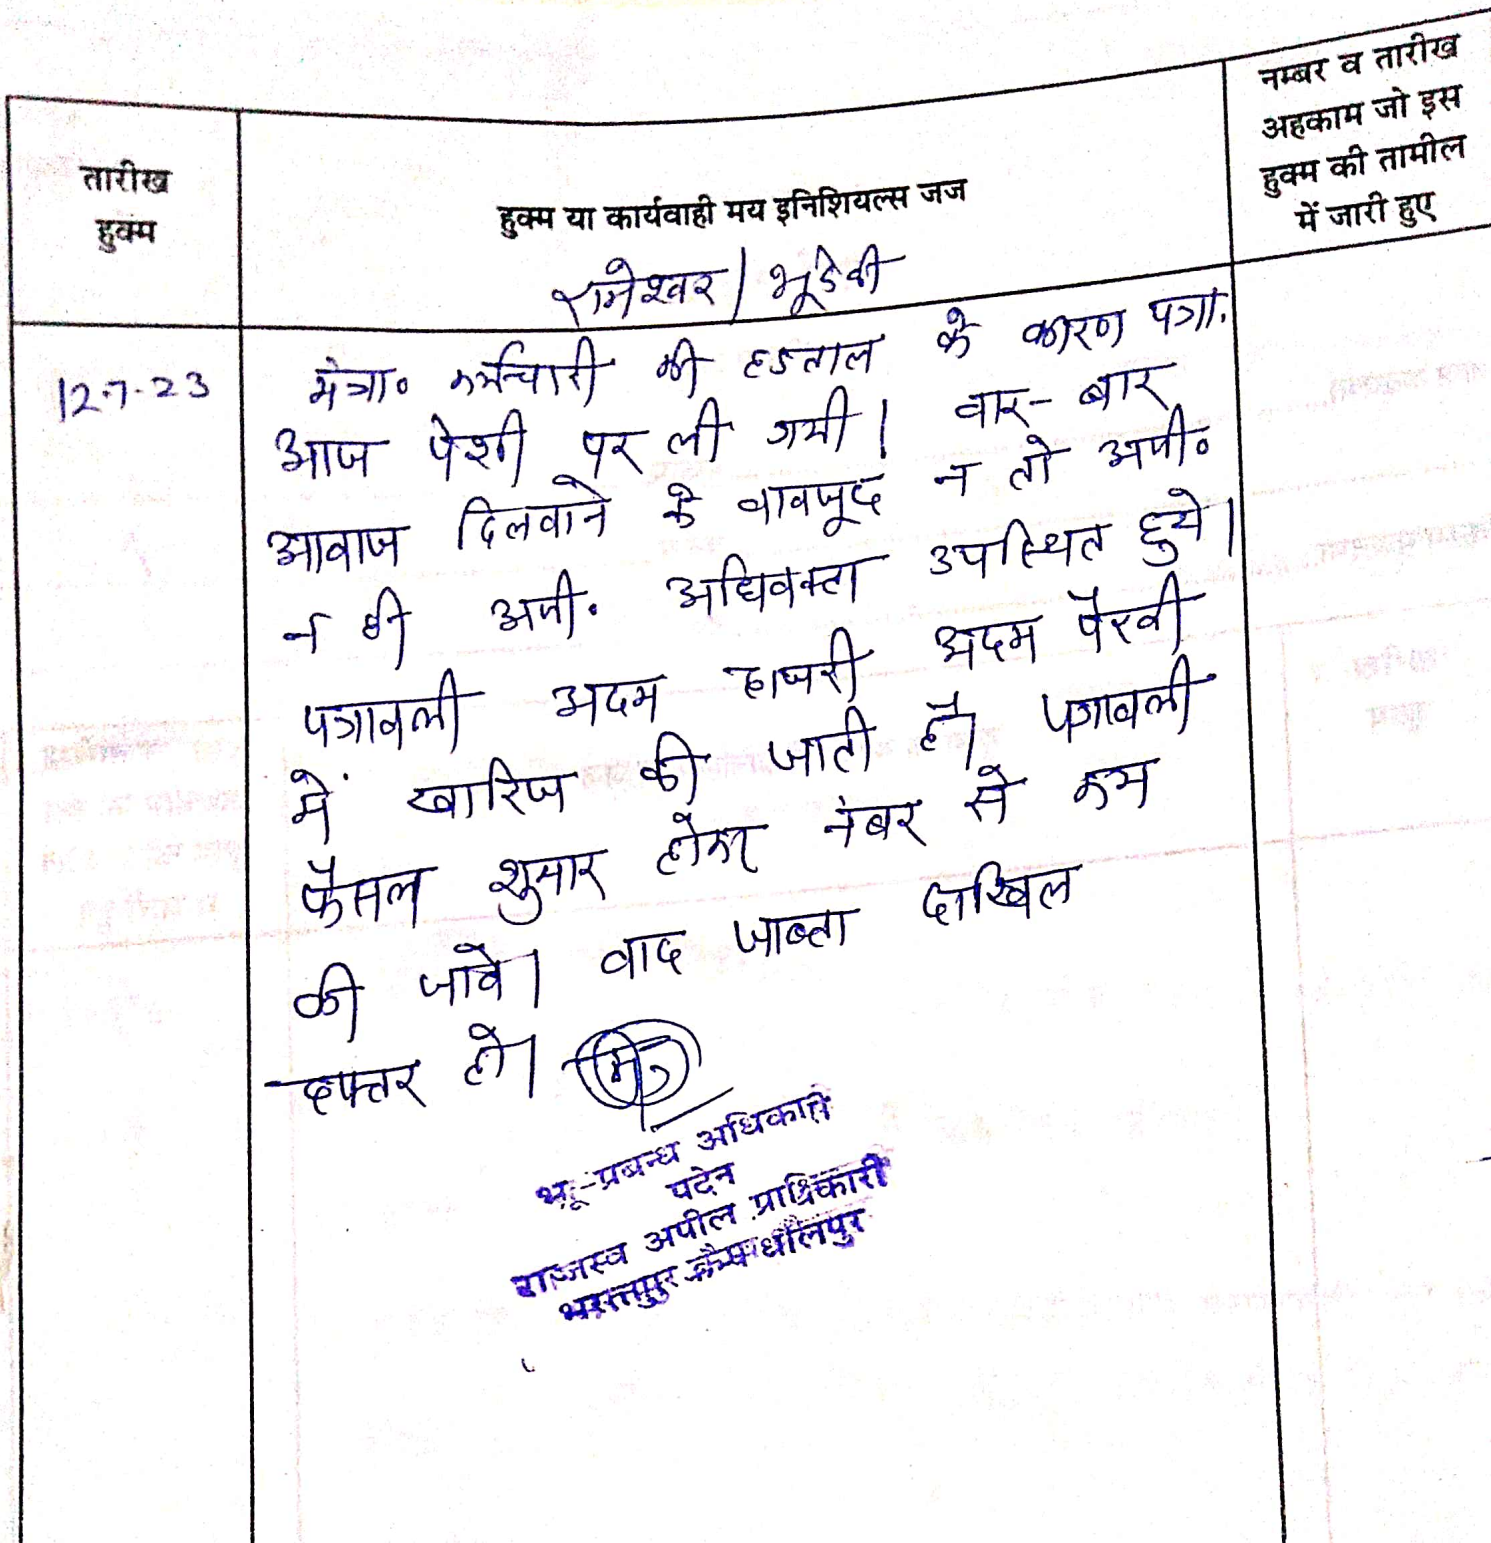 तारीख
हुक्म
हुक्म या कार्यवाही मय इनिशियल्स जज
नम्बर व तारीख
अहकाम जो इस
हुक्म की तामील
में जारी हुए
रामेश्वर / भूदेवी
12-7-23
मंत्रा० कर्मचारी की हडताल के कारण पत्रा.
आज पेशी पर ली गयी। वार-बार
आवाज दिलवाने के वावजूद न तो अपी०
न ही अपी. अधिवक्ता उपस्थित हुये।
पत्रावली अदम हाजरी अदम पैरवी
में खारिज की जाती है। पत्रावली
फैसल शुमार होकर नंबर से कम
की जावे। वाद जाब्ता दाखिल
दफ्तर हो।
भू-प्रबन्ध अधिकारी
पदेन
राजस्व अपील प्राधिकारी
भरतपुर कैम्प धौलपुर